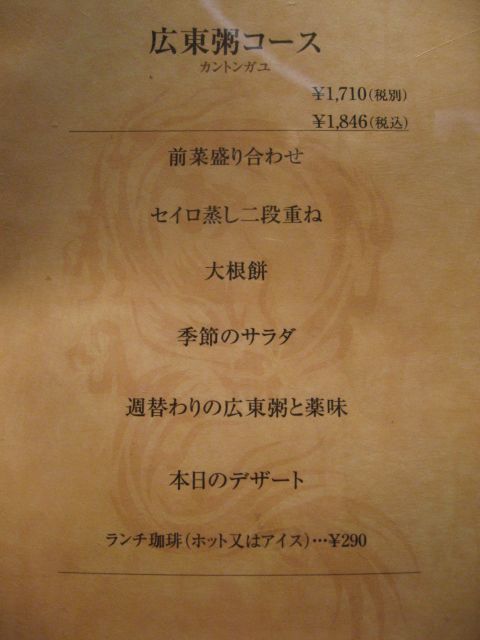 広東粥コース
カントンガユ
¥1,710(税別)
¥1,846(税込)
前菜盛り合わせ
セイロ蒸し二段重ね
大根餅
季節のサラダ
週替わりの広東粥と薬味
本日のデザート
ランチ珈琲(ホット又はアイス)…¥290